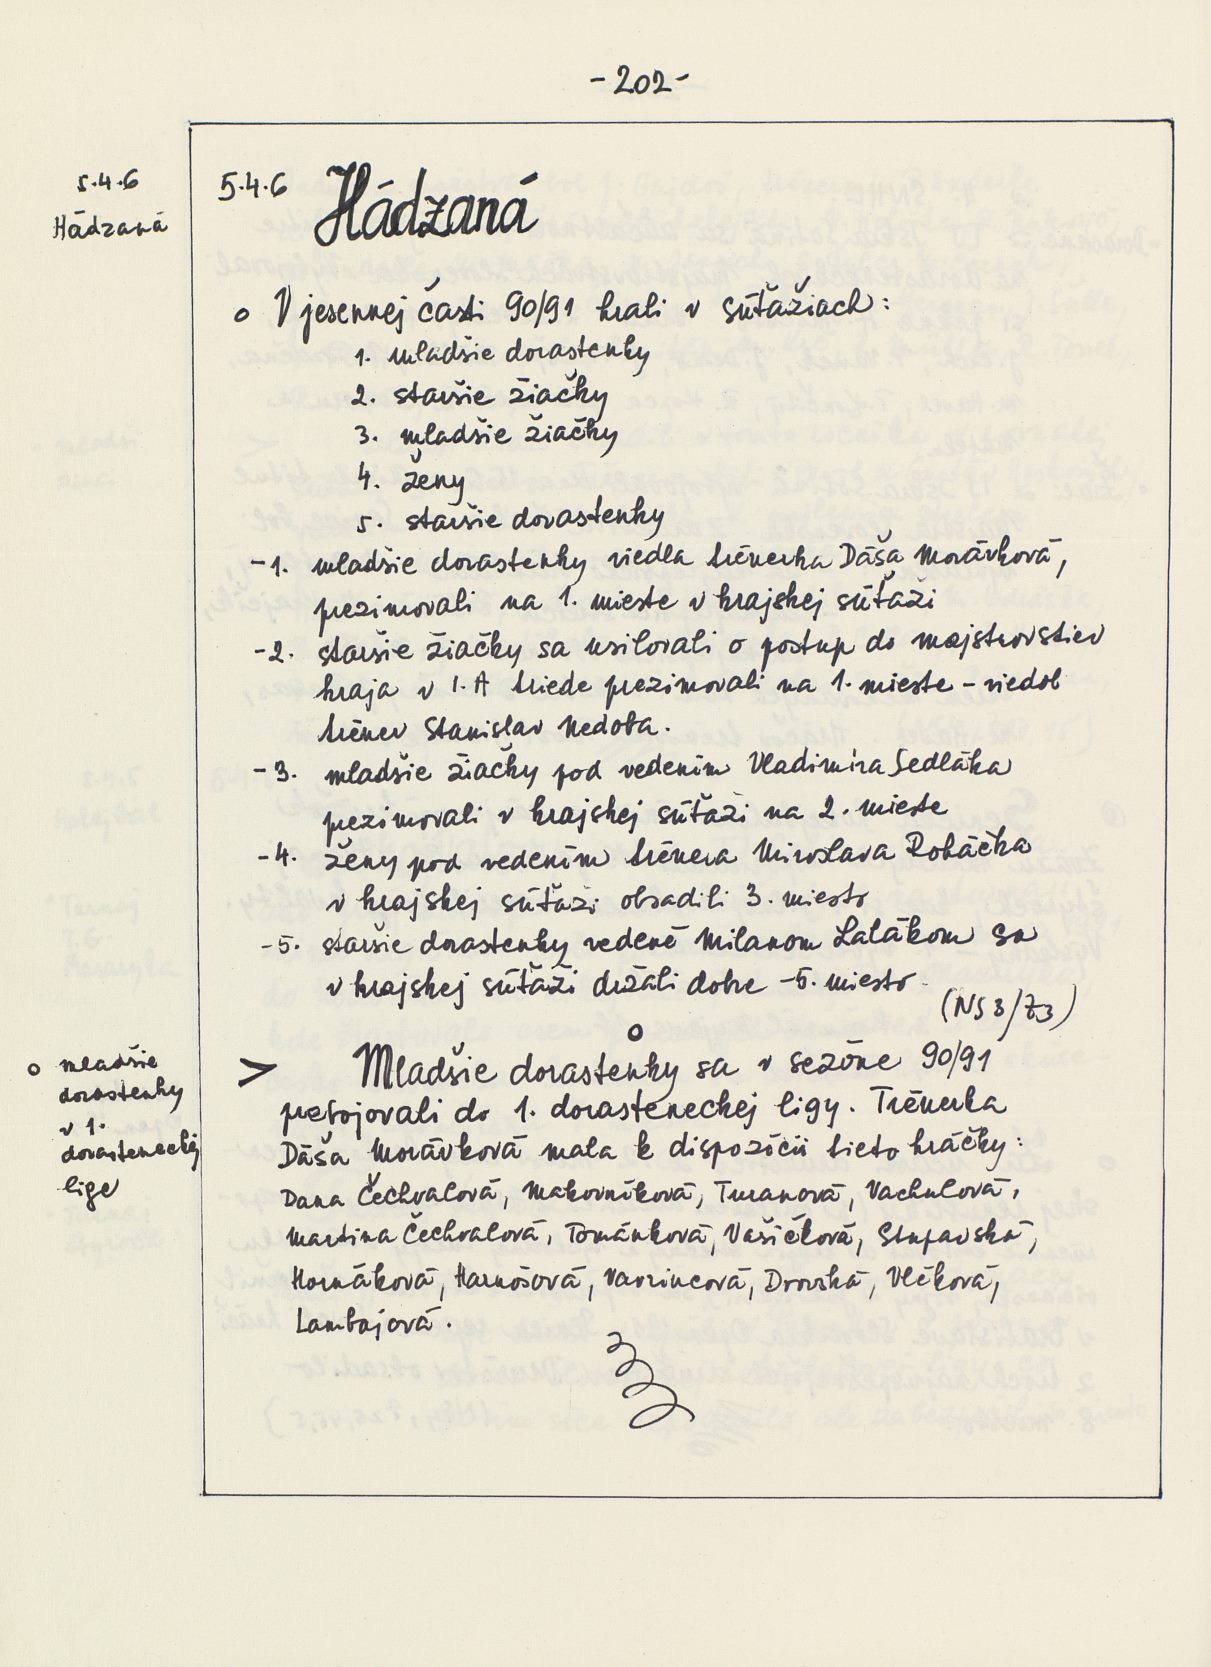 -202-
5.4.6
Hádzaná
5.4.6 Hádzaná
o V jesennej časti 90/91 hrali v súťažiach:
1. mladšie dorastenky
2. staršie žiačky
3. mladšie žiačky
4. ženy
5. staršie dorastenky
-1. mladšie dorastenky viedla trénerka Dáša Morávková,
prezimovali na 1. mieste v krajskej súťaži
-2. staršie žiačky sa usilovali o postup do majstrovstiev
kraja v I.A triede prezimovali na 1. mieste - viedol
tréner Stanislav Nedoba.
-3. mladšie žiačky pod vedením Vladimíra Sedláka
prezimovali v krajskej súťaži na 2. mieste
-4. ženy pod vedením trénera Miroslava Robáčka
v krajskej súťaži obsadili 3. miesto
-5. staršie dorastenky vedené Milanom Lalákom sa
v krajskej súťaži držali dobre -5. miesto.
(NS 3/Z3)
o
o mladšie
dorastenky
v 1.
dorasteneckej
lige
> Mladšie dorastenky sa v sezóne 90/91
prebojovali do 1. dorasteneckej ligy. Trénerka
Dáša Morávková mala k dispozícii tieto hráčky:
Dana Čechvalová, Makovníková, Turanová, Vachulová,
Martina Čechvalová, Tománková, Vašíčková, Stupavská,
Hornáková, Harnošová, Vavrincová, Drovská, Vlčková,
Lambajová.